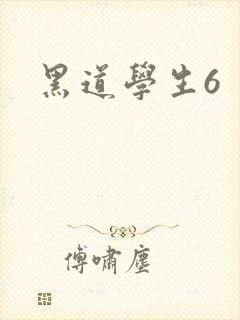 黑道學生6
傅嘯塵